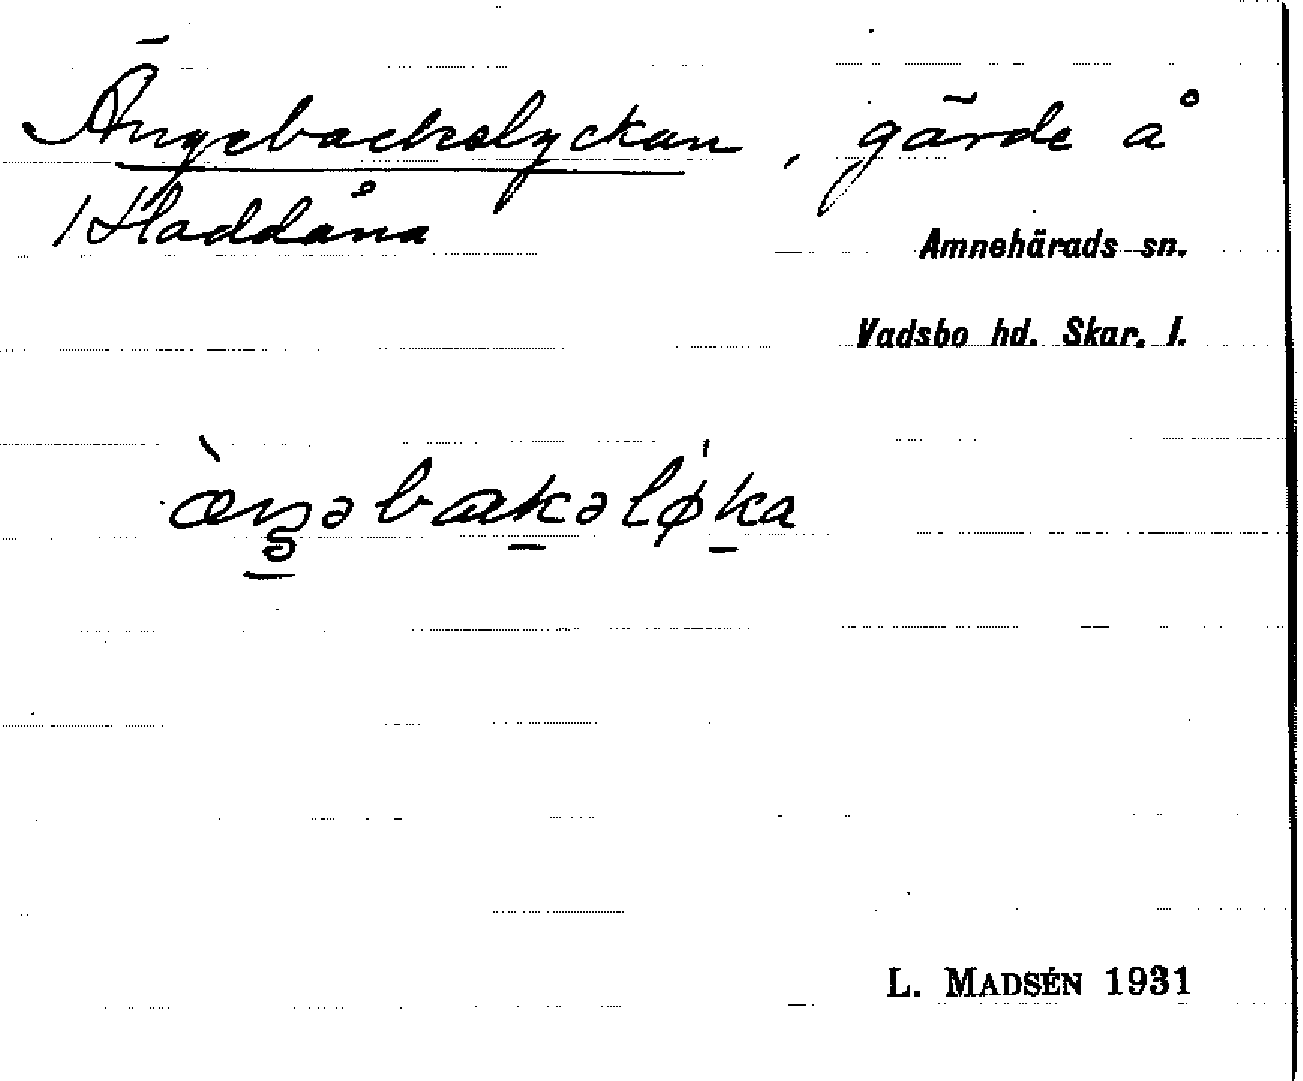 Ängebackalyckan, gärde å
1 Haddåna
Amnehärads sn.
Vadsbo hd. Skar. l.
æ̀ŋəbakəlø̍ka
L. MADSÉN 1931